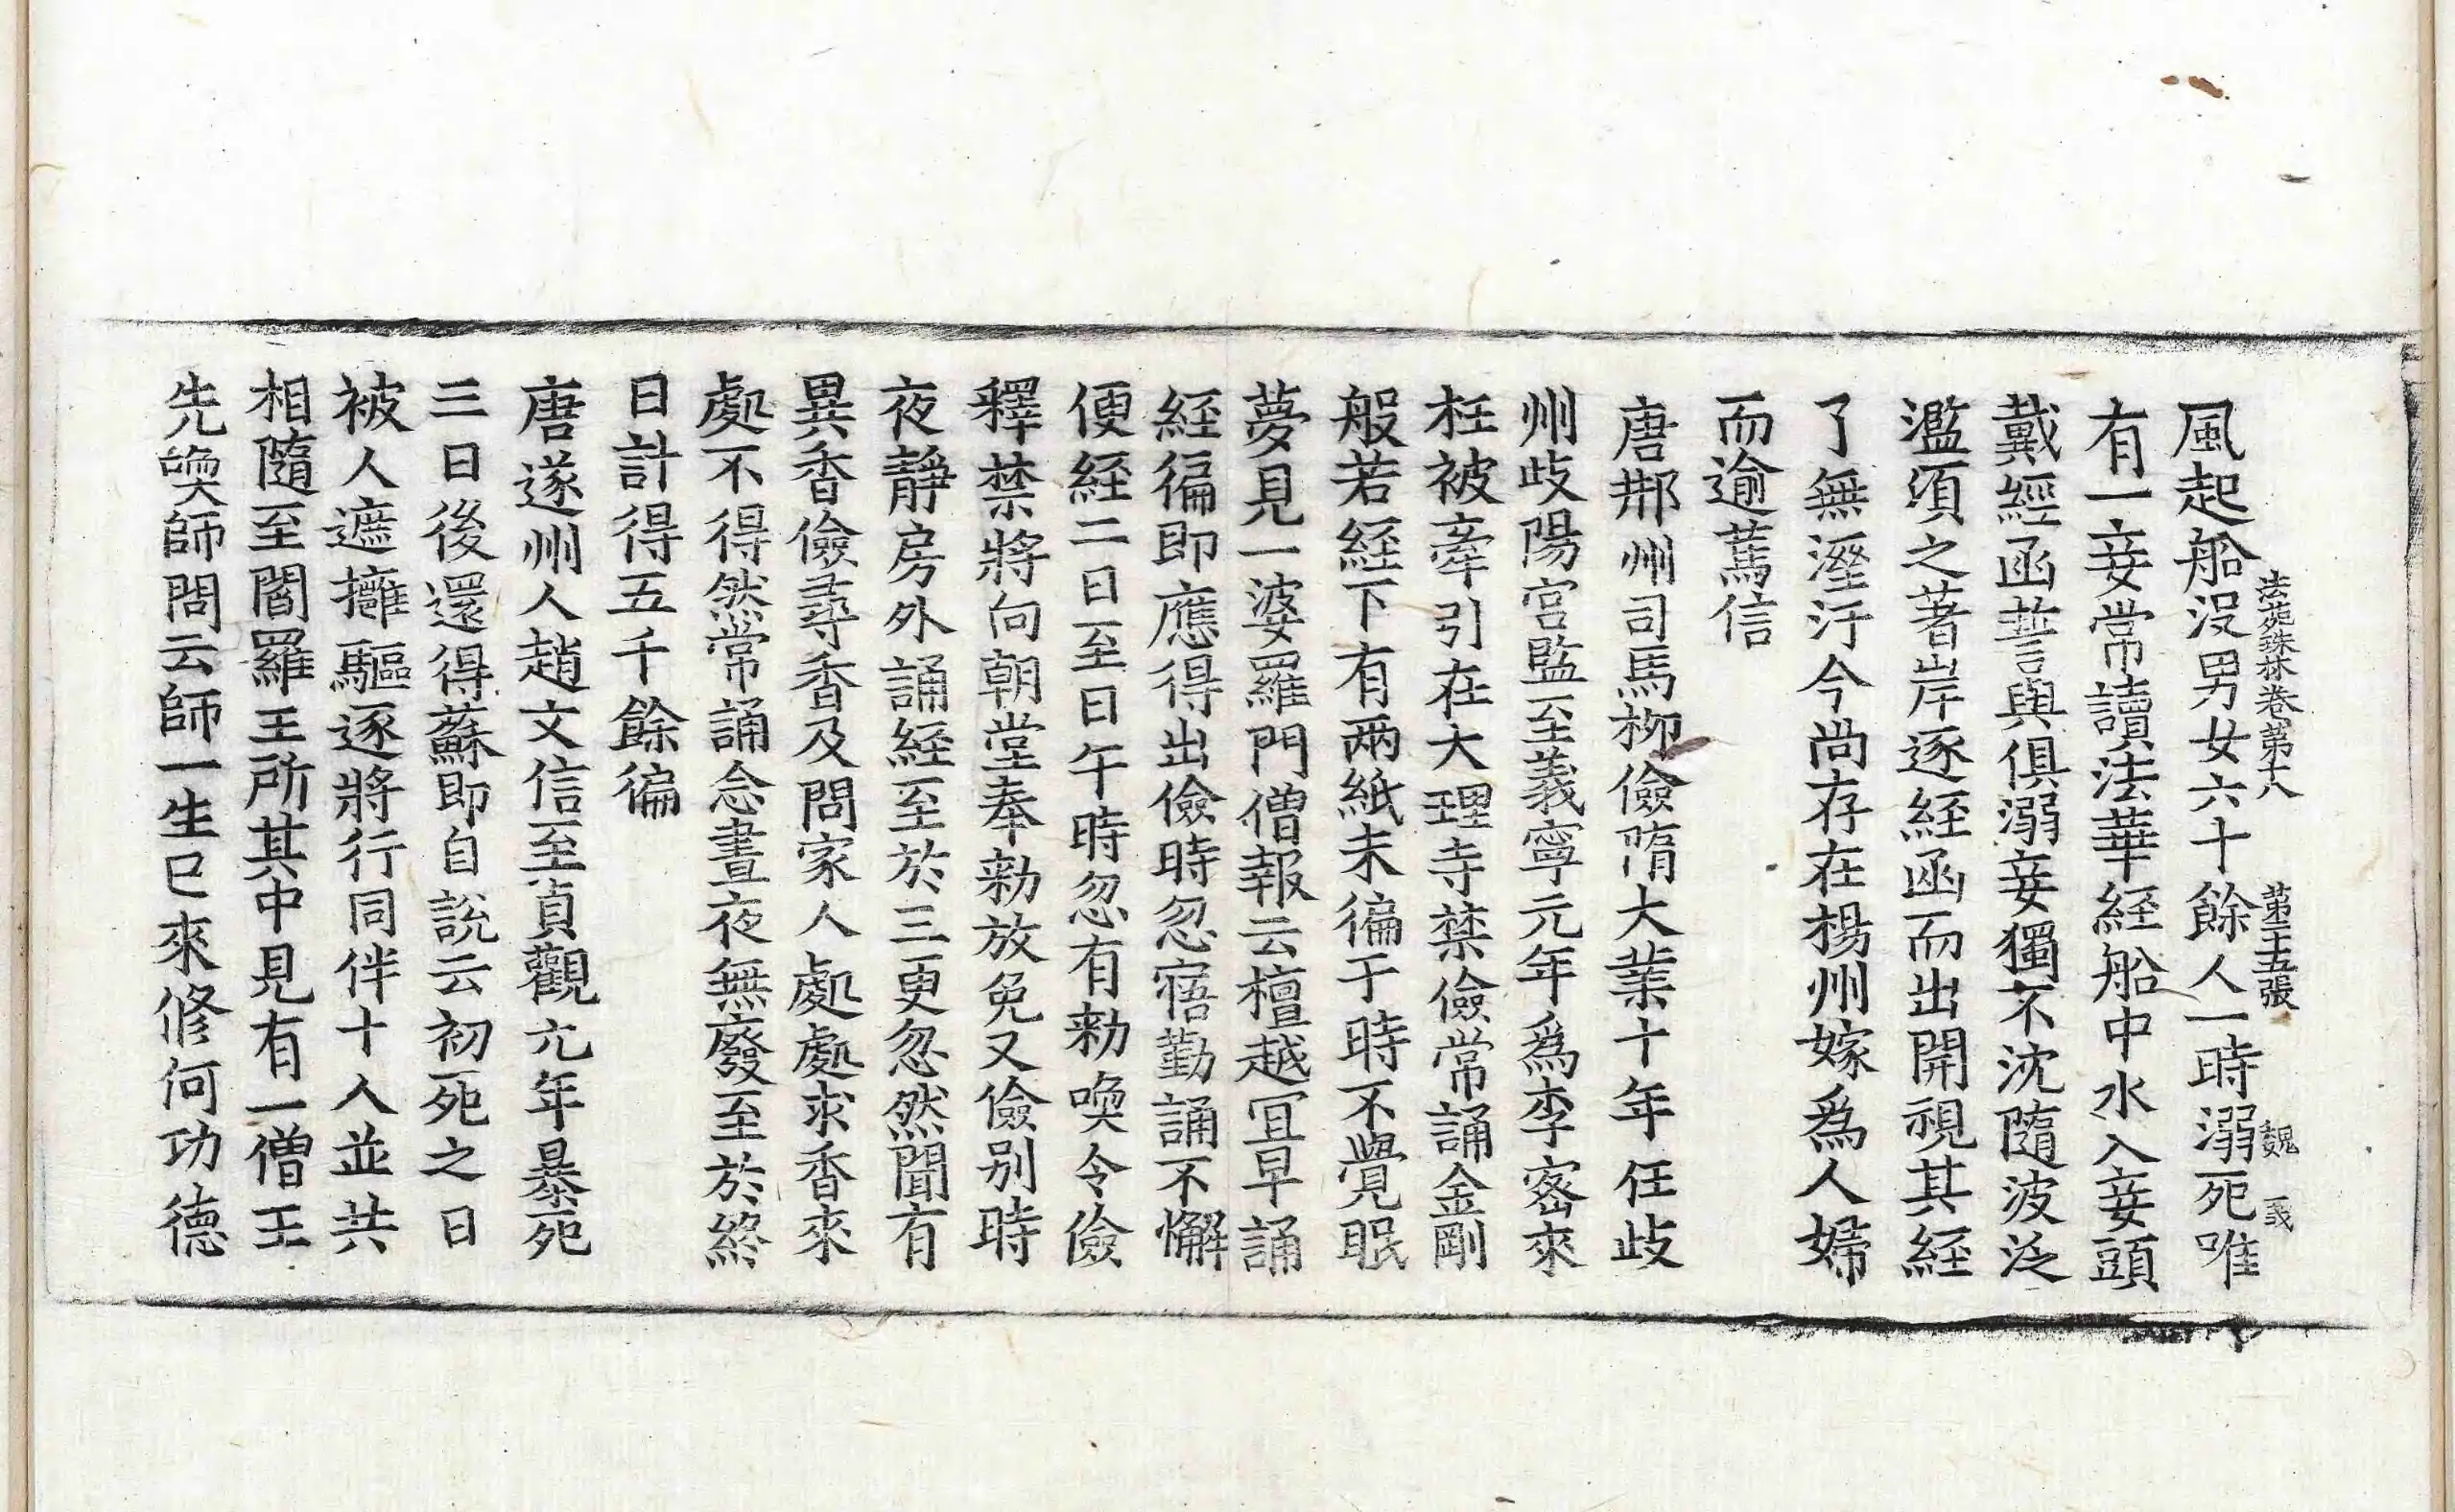 法苑珠林卷第十八 第二十五張 魏 㦲
風起船没男女六十餘人一時溺死唯
有一妾常讀法華経船中水入妾頭
戴經函誓與俱溺妾獨不沈隨波泛
濫須之著岸逐経函而出開視其経
了無溼汙今尚存在楊州嫁爲人婦
而逾篤信
唐邢州司馬柳儉隋大業十年任歧
州歧陽宫監至義寧元年爲李宻來
枉被牽引在大理寺禁儉常誦金剛
般若経下有兩紙未徧于時不覺眠
夢見一婆羅門僧報云檀越冝早誦
経徧即應得出儉時忽寤勤誦不懈
便経二日至日午時忽有勑喚令儉
釋禁將向朝堂奉勑放免又儉别時
夜靜房外誦経至於三更忽然聞有
異香儉尋香及問家人處處求香來
處不得然常誦念晝夜無廢至於終
日計得五千餘徧
唐遂州人趙文信至貞觀元年暴死
三日後還得蘇即自說云初死之日
被人遮擁驅逐將行同伴十人並共
相隨至閻羅王所其中見有一僧王
先喚師問云師一生已來修何功德